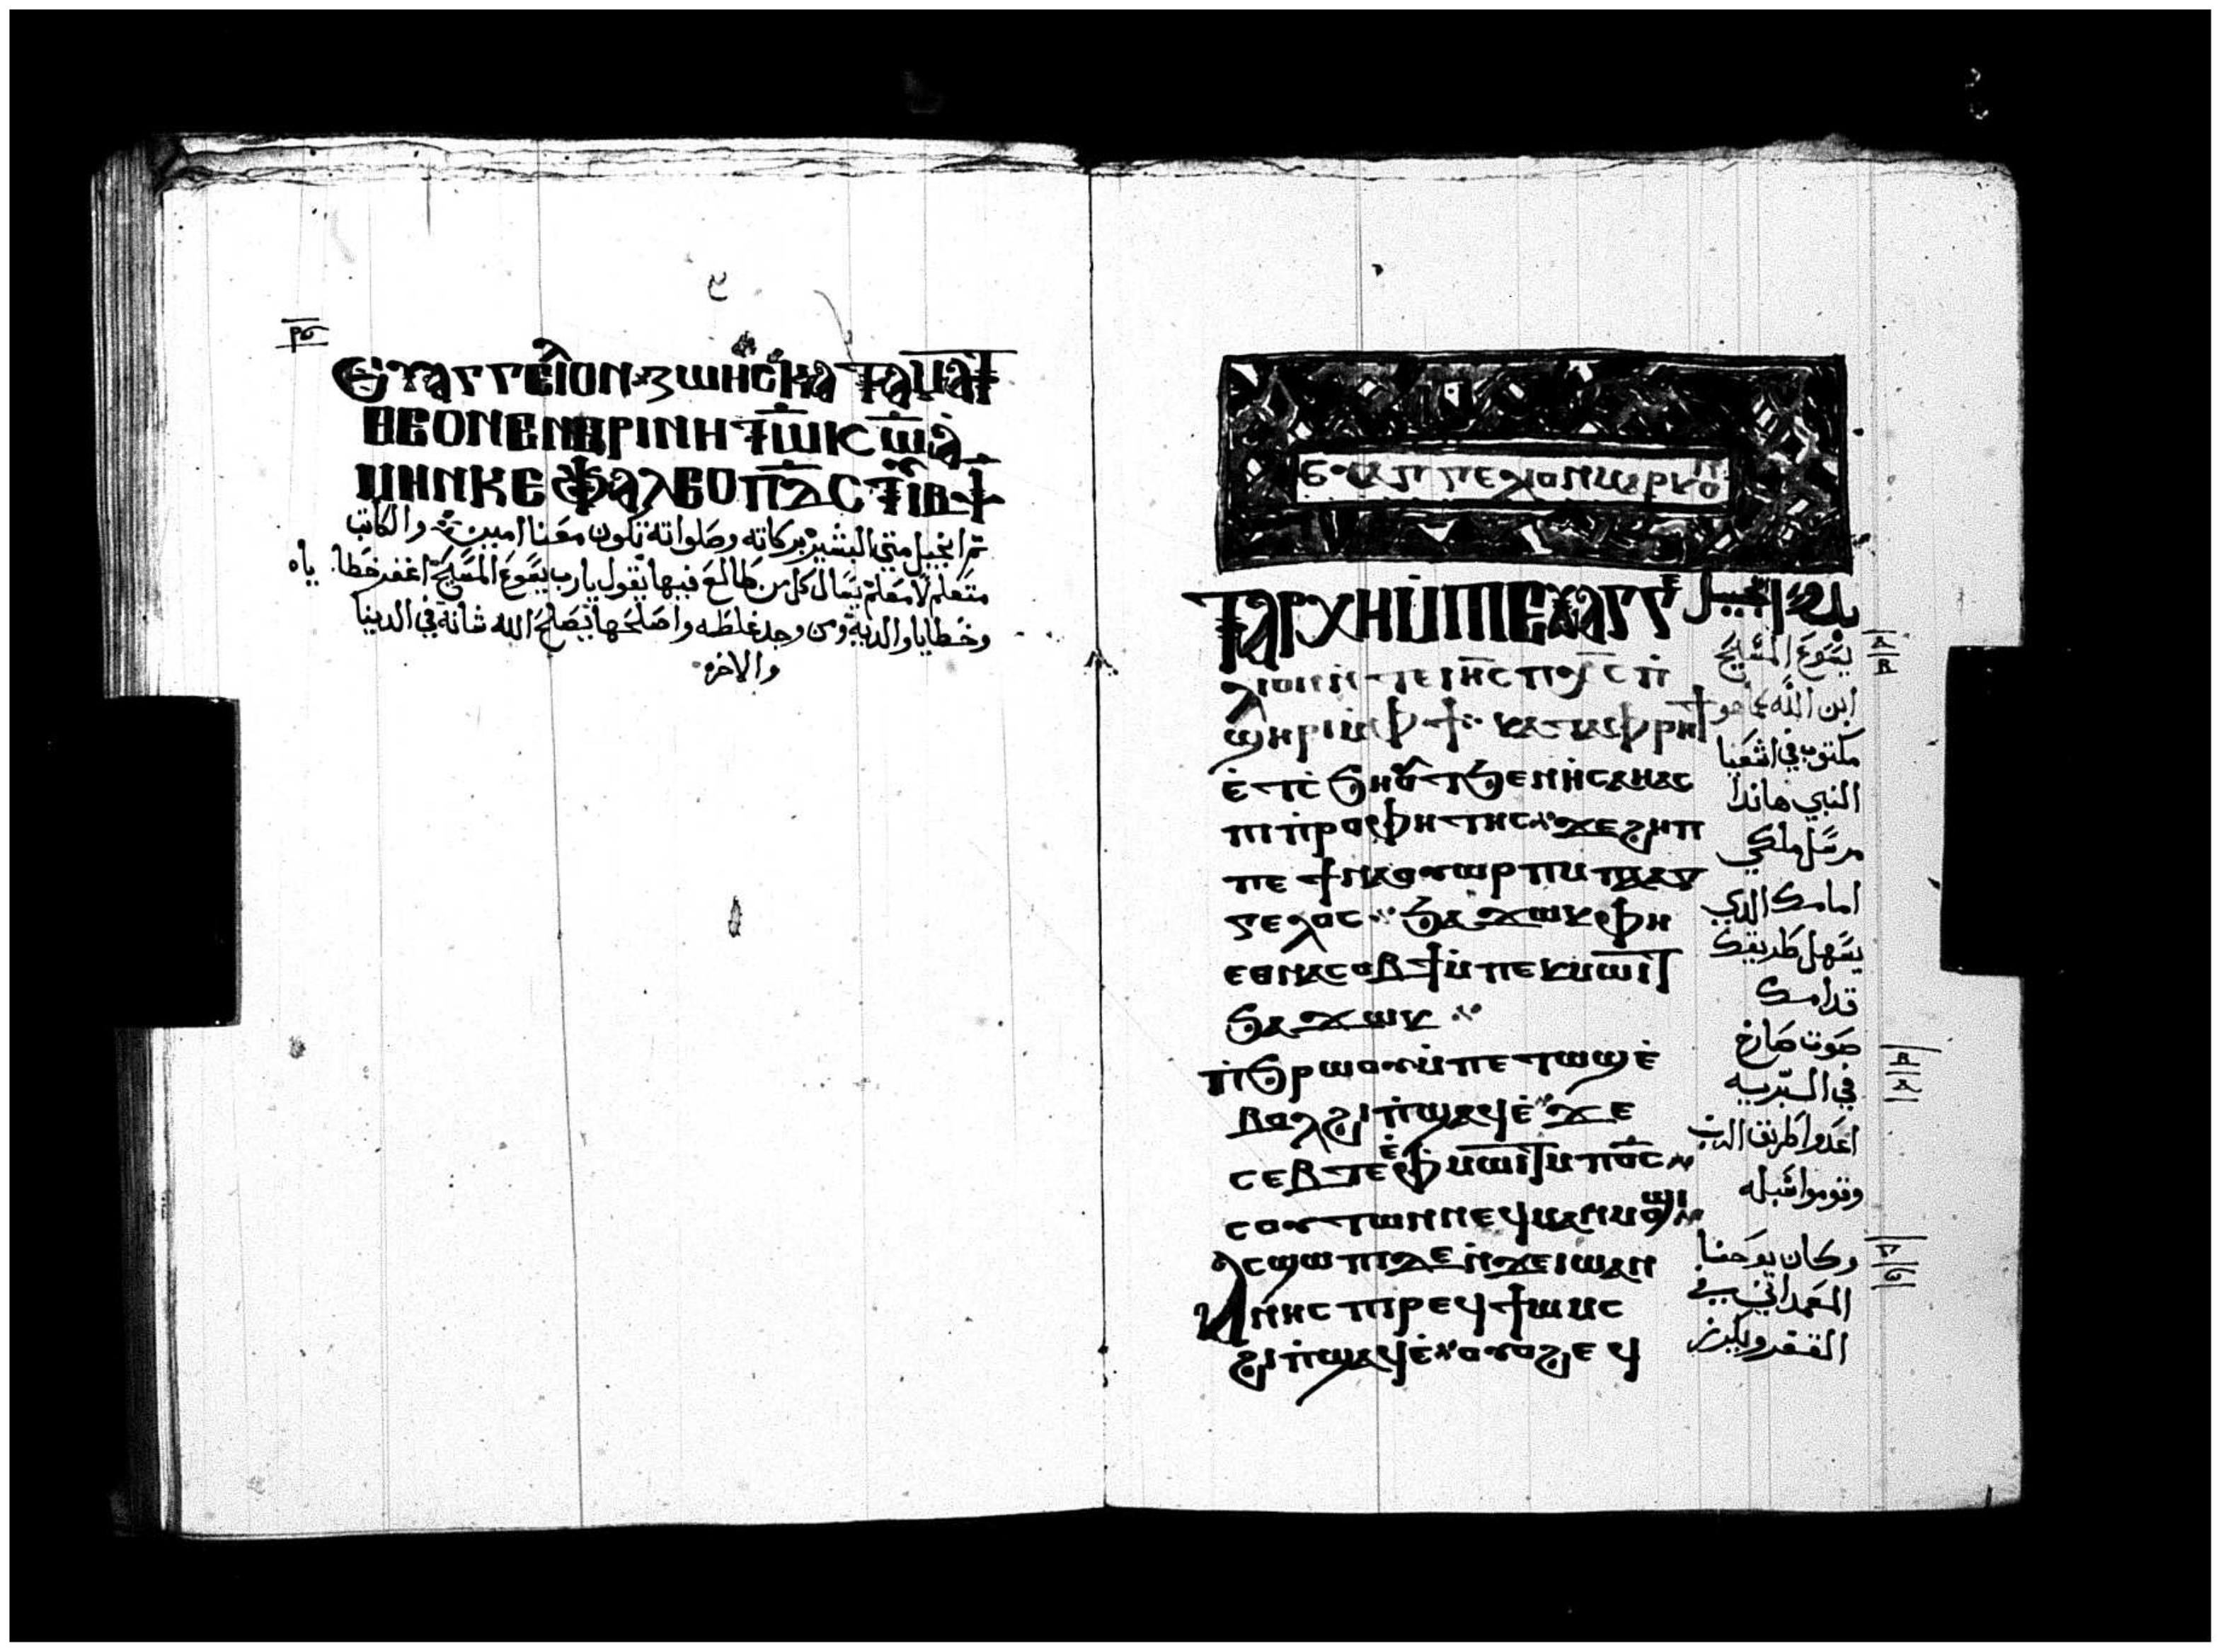 ⲣⲋ
ⲉⲩⲁⲅⲅⲉⲗⲓⲟⲛ ⲍⲱⲏⲥ ⲕⲁⲧⲁ ⲙⲁⲧ
ⲑⲉⲟⲛ
ⲙⲏⲛ ⲕⲉ
تم انجيل متي البشير بركاته وصلواته تكون معنا امين والكاتب
متعلم لا معلم يسال كل من طالع فيها يقول يارب يسوع المسيح اغفر خطا ياه
وخطايا والديه ومن وجد غلطه واصلحها يصلح الله شانه في الدينا
والاخره
ⲧⲁⲣⲭⲏ ⲙ̀ⲡⲓⲉⲩⲁⲅⲅⲉ
ⲗⲓⲟⲛ ⲛ̀ⲧⲉ ⲓⲏ̅ⲥ̅ ⲡⲭ̅ⲥ̅ ⲡ̀
ϣⲏⲣⲓ ⲙ̀ⲫϯ ⲕⲁⲧⲁ ⲫⲣⲏϯ
ⲉ̀ⲧⲥ̀ϧⲏⲟⲩⲧ ϧⲉⲛ ⲏ̀ⲥⲁⲏⲁⲥ
ⲡⲓⲡ̀ⲣⲟⲫⲏⲧⲏⲥ ϫⲉ ϩⲏⲡ
ⲡⲉ ϯⲛⲁⲟⲩⲱⲣⲡ ⲙ̀ⲡⲁⲁⲅ
ⲅⲉⲗⲟⲥ ϧⲁϫⲱⲕ ⲫⲏ
ⲉⲑⲛⲁⲥⲟⲃϯ ⲙ̀ⲡⲉⲕⲙⲱⲓⲧ
ϧⲁϫⲱⲕ
ⲡ̀ϧⲣⲱⲟⲩ ⲙ̀ⲡⲉⲧⲱϣ ⲉ̀
ⲃⲟⲗ ϩⲓ ⲡ̀ϣⲁϥⲉ̀ ϫⲉ
ⲥⲉⲃⲧⲉ ⲫ̀ⲙⲱⲓⲧ ⲙ̀ⲡⲟ̅ⲥ̅
ⲥⲟⲩⲧⲱⲛ ⲛⲉϥⲙⲁⲛⲙⲟϣⲓ
ⲁⲥϣⲱⲡⲓ ⲇⲉ ⲛ̀ϫⲉ ⲓⲱⲁⲛ
ⲛⲏⲥ ⲡⲓⲣⲉϥϯⲱⲙⲥ
ϩⲓ ⲡ̀ϣⲁϥⲉ̀ ⲟⲩⲟϩ ⲉϥ
بدء انجيل
يسوع المسيح
ابن الله كما هو
مكتوب في اشعيا
النبي هاندا
مرسل ملكي
امامك الذي
يسهل طريقك
قدامك
صوت صارخ
في البريه
اعدوا طريق الرب
وقوموا سبله
وكان يوحنا
المعمداني في
القفر ويكرز
ⲁ
ⲃ
ⲃ
ⲁ
ⲅ
ⲋ